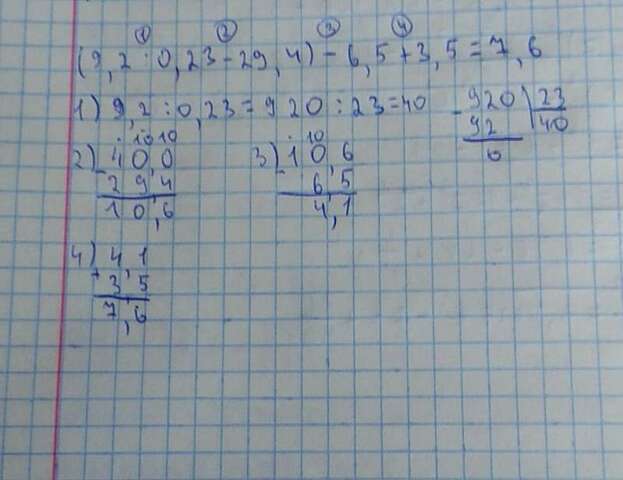 ① ② ③ ④
(9,2:0,23-29,4)-6,5+3,5=7,6
1) 9,2:0,23=920:23=40
-920 | 23
92 | 40
0
. 10 10
2) -40,0
29,4
10,6
. 10
3) -10,6
6,5
4,1
4) +4,1
3,5
7,6